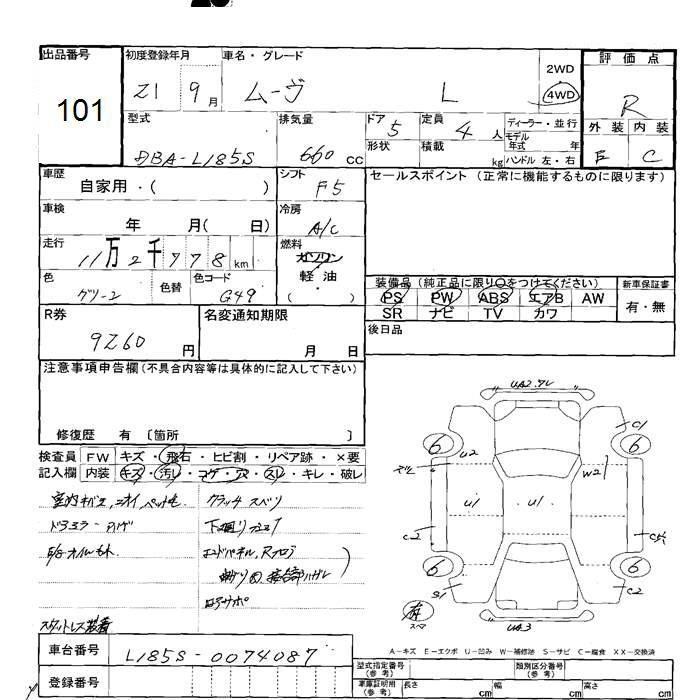 出品番号 初度登録年月 車名・グレード 評価点
101
21 9月 ムーヴ L 2WD 4WD R
型式 排気量 ドア 定員 ディーラー・並行 外装 内装
DBA-L185S 660cc 5 4人 モデル年式 年 E C
形状 積載 kg ハンドル 左・右
車歴 シフト セールスポイント (正常に機能するものに限ります)
自家用・( ) F5
車検 冷房
年 月( 日) A/C
走行 燃料
11万2千778km ガソリン
軽油
( )
色 色替 色コード 装備品(純正品に限り○をつけてください) 新車保証書
グリーン G49 PS PW ABS エアB AW 有・無
SR ナビ TV カワ
R券 名変通知期限 後日品
9260円 月 日
注意事項申告欄(不具合内容等は具体的に記入して下さい)
修復歴 有 〔箇所 〕
検査員 FW キズ・飛石・ヒビ割・リペア跡・×要
記入欄 内装 キズ・汚レ・コゲ・穴・スレ・キレ・破レ
クラッチスベリ
下廻り
UA2
C1
6 6
U2
W2
U1 U1
C2
6 6
S1 C2
UA3
A-キズ E-エクボ U-凹み W-補修跡 S-サビ C-腐食 XX-交換済
車台番号 L185S-0074087
登録番号
型式指定番号(参考) 類別区分番号(参考)
車庫証明用(参考) 長さ cm 幅 cm 高さ cm